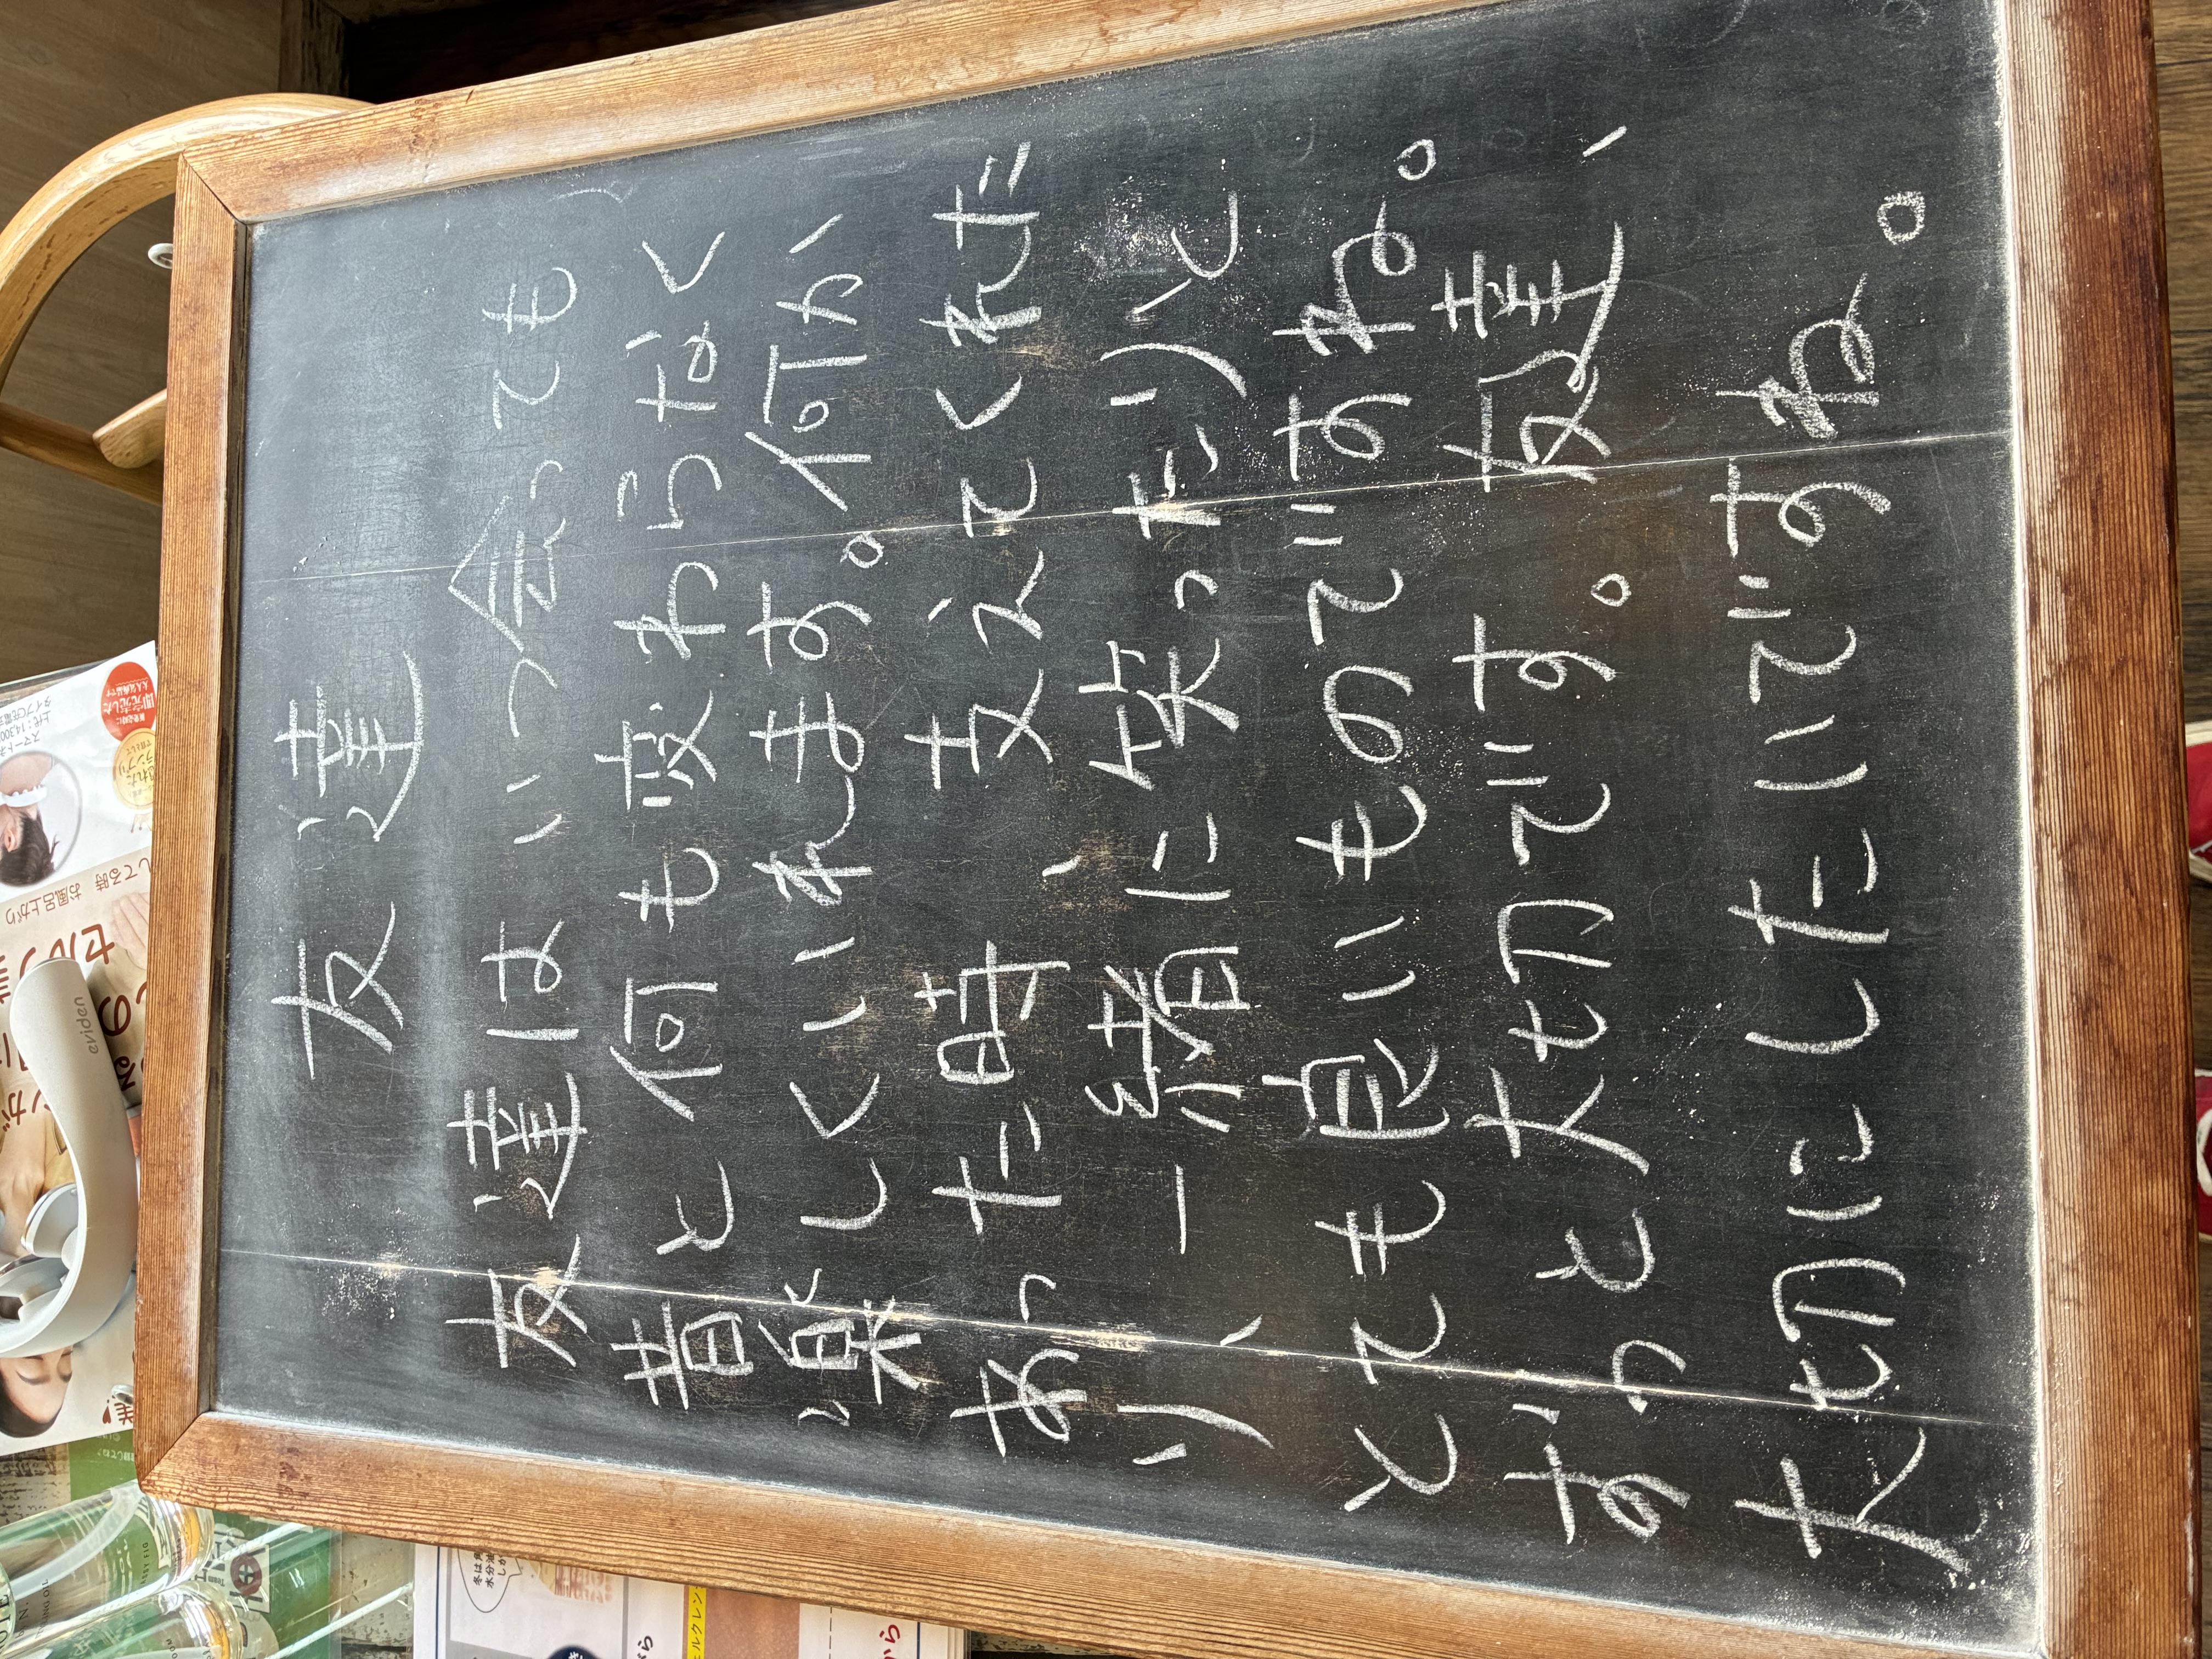 友達
友達はいつ会っても
昔と何も変わらなく
楽しくいれます。何か、
あった時、支えてくれた
り、一緒に笑ったりと
とても良いものですね。
ずっと大切です。友達、
大切にしたいですね。
eviden